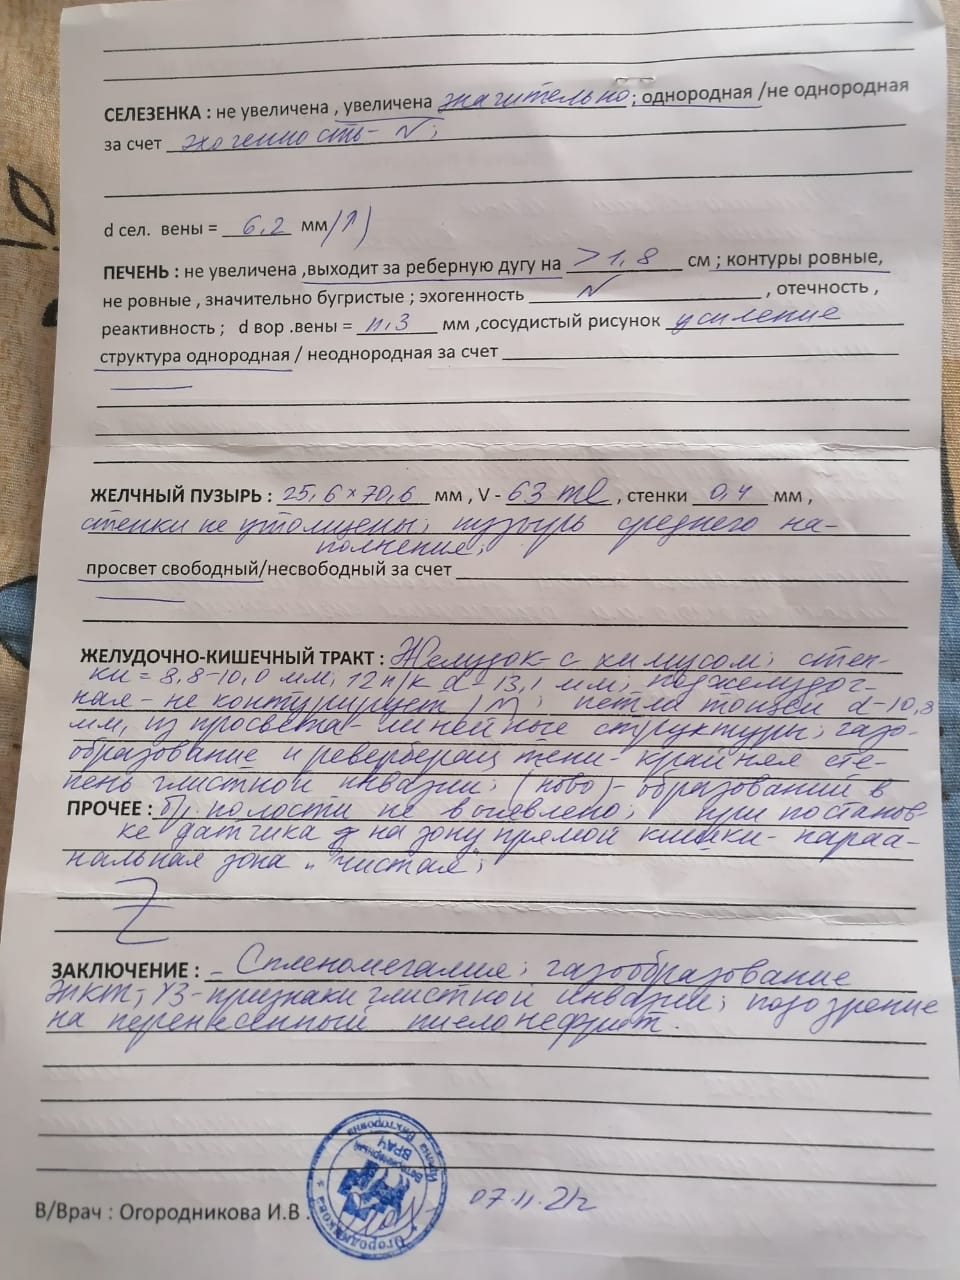 СЕЛЕЗЕНКА : не увеличена , увеличена значительно; однородная /не однородная
за счет эхогенность - N;
d сел. вены = 6,2 мм (↑)
ПЕЧЕНЬ : не увеличена ,выходит за реберную дугу на >1,8 см ; контуры ровные,
не ровные , значительно бугристые ; эхогенность N , отечность ,
реактивность ; d вор .вены = 11,3 мм ,сосудистый рисунок усиление
структура однородная / неоднородная за счет
ЖЕЛЧНЫЙ ПУЗЫРЬ : 25,6×70,6 мм , V - 63 ml , стенки 0,4 мм ,
стенки не утолщены; пузырь среднего на-
полнения;
просвет свободный/несвободный за счет
ЖЕЛУДОЧНО-КИШЕЧНЫЙ ТРАКТ : Желудок - с химусом; стен-
ки = 8,8-10,0 мм; 12 п/к d = 13,1 мм; поджелудоч-
ная - не контурирует (N); петли тощей d-10,8
мм, из просвета - линейные структуры; газо-
образование и ревербирац тени - крайняя сте-
пень глистной инвазии; (ново)- образований в
ПРОЧЕЕ : бр. полости не выявлено; при постанов-
ке датчика на зону прямой кишки - параа-
нальная зона "чистая";
ЗАКЛЮЧЕНИЕ : - Спленомегалия; газообразование
ЖКТ; УЗ-признаки глистной инвазии; подозрение
на перенесенный пиелонефрит.
В/Врач : Огородникова И.В .
07.11.21г
Огородникова Ирина Викторовна
Ветеринарный
ВРАЧ